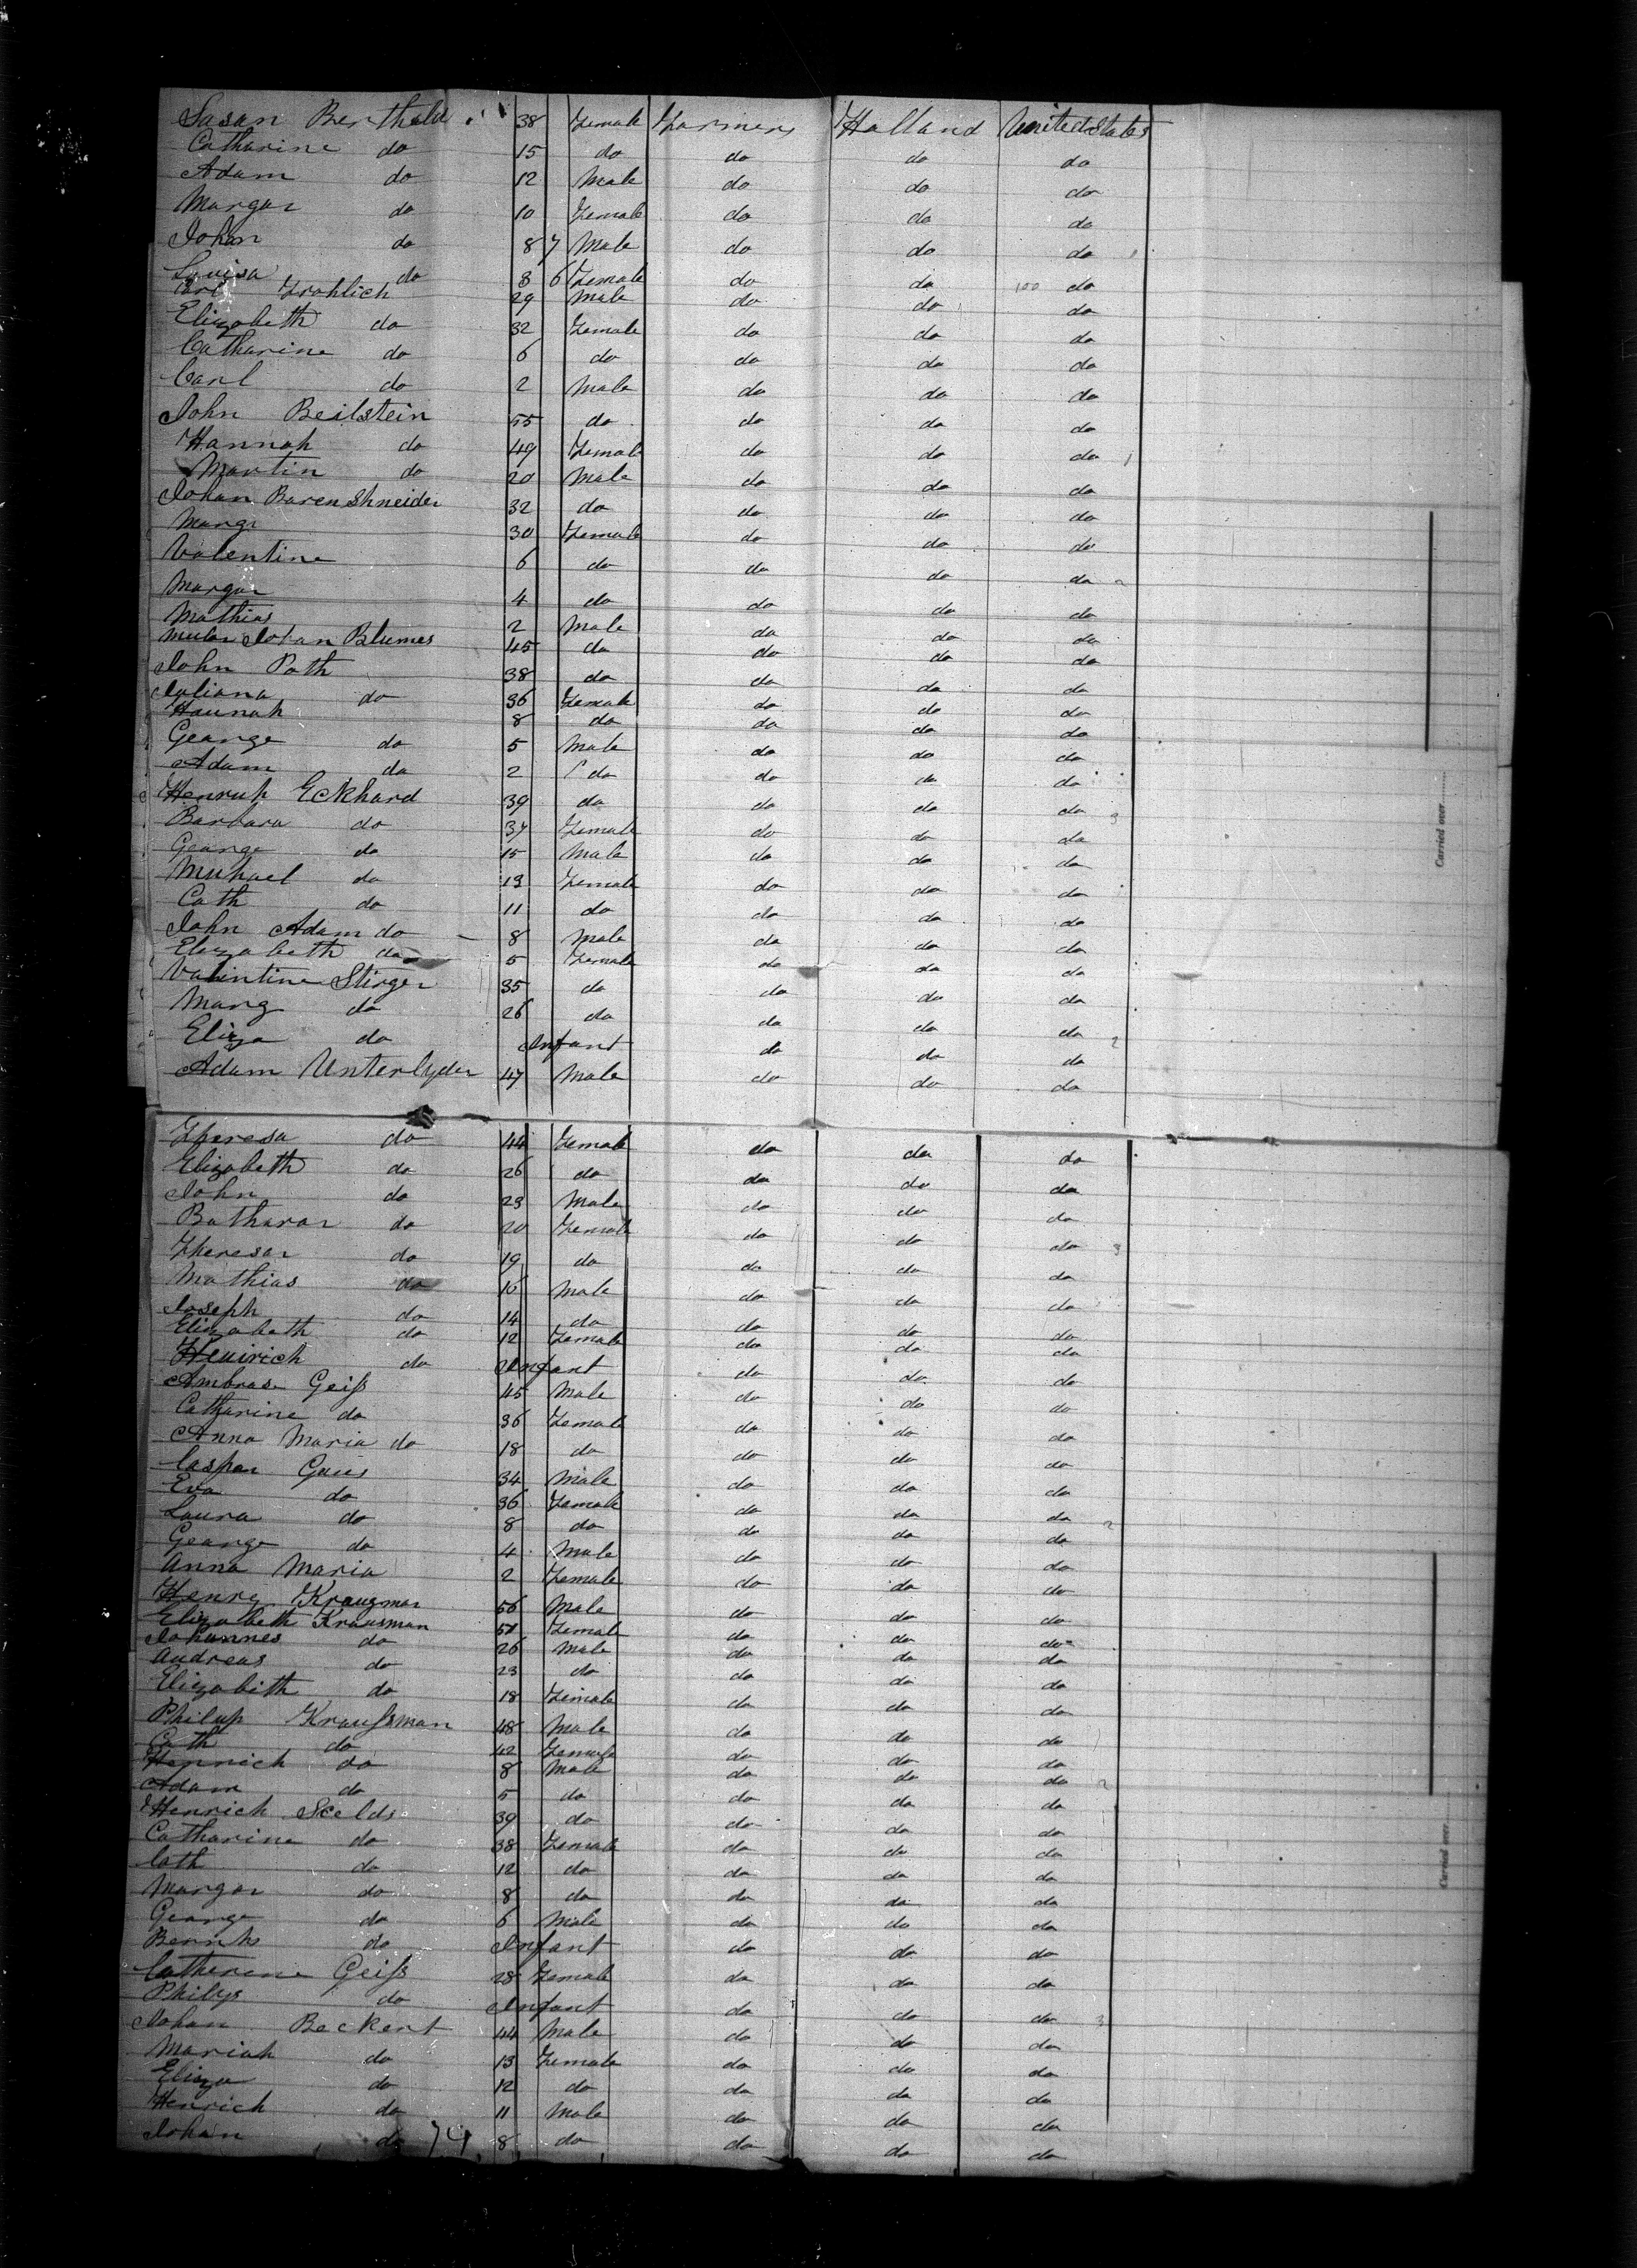 Susan Berthold 38 Female Farmers Holland United States
Catharine do 15 do do do do
Adam do 12 Male do do do
Margar do 10 Female do do do
Johan do 8 7 Male do do do
Louisa do 8 6 Female do do 100 do
Carl Frohlich 29 Male do do do
Elizabeth do 32 Female do do do
Catharine do 6 do do do do
Carl do 2 Male do do do
John Beilstein 55 do do do do
Hannah do 49 Female do do do
Martin do 20 Male do do do
Johan Barenshneider 32 do do do do
Margr 30 Female do do do
Valentine 6 do do do do
Margar 4 do do do do
Mathias 2 Male do do do
Johan Blumes 45 do do do do
John Poth 38 do do do do
Juliana do 36 Female do do do
Hannah 8 do do do do
George do 5 Male do do do
Adam do 2 do do do do
Henrich Eckhard 39 do do do do
Barbara do 37 Female do do do
George do 15 Male do do do
Michael do 13 Female do do do
Cath do 11 do do do do
John Adam do 8 Male do do do
Elizabeth do 5 Female do do do
Valintine Stirger 35 do do do do
Marg do 26 do do do do
Eliza do Infant do do do
Adam Unterlyder 47 Male do do do
Theresa do 44 Female do do do
Elizabeth do 26 do do do do
John do 23 Male do do do
Batharar do 20 Female do do do
Theresar do 19 do do do do
Mathias do 16 Male do do do
Joseph do 14 do do do do
Elizabeth do 12 Female do do do
Heinrich do Infant do do do
Ambrose Geiß 45 Male do do do
Catharine do 36 Female do do do
Anna Maria do 18 do do do do
Caspar Gaus 34 Male do do do
Eva do 36 Female do do do
Laura do 8 do do do do
George do 4 Male do do do
Anna Maria 2 Female do do do
Henry Krausman 56 Male do do do
Elizabeth Krausman 51 Female do do do
Johannes do 26 Male do do do
Andreas do 23 do do do do
Elizabith do 18 Female do do do
Philip Kraußman 48 Male do do do
Cath do 42 Female do do do
Henrich do 8 Male do do do
Adam do 5 do do do do
Henrich Scelds 39 do do do do
Catharine do 38 Female do do do
Cath do 12 do do do do
Margar do 8 do do do do
George do 6 Male do do do
do Infant do do do
Catherine Geiß 28 Female do do do
Philip do Infant do do do
Johan Beckert 44 Male do do do
Mariah do 13 Female do do do
Eliza do 12 do do do do
Henrich do 11 Male do do do
Johan do 74 8 do do do do
Carried over
Carried over